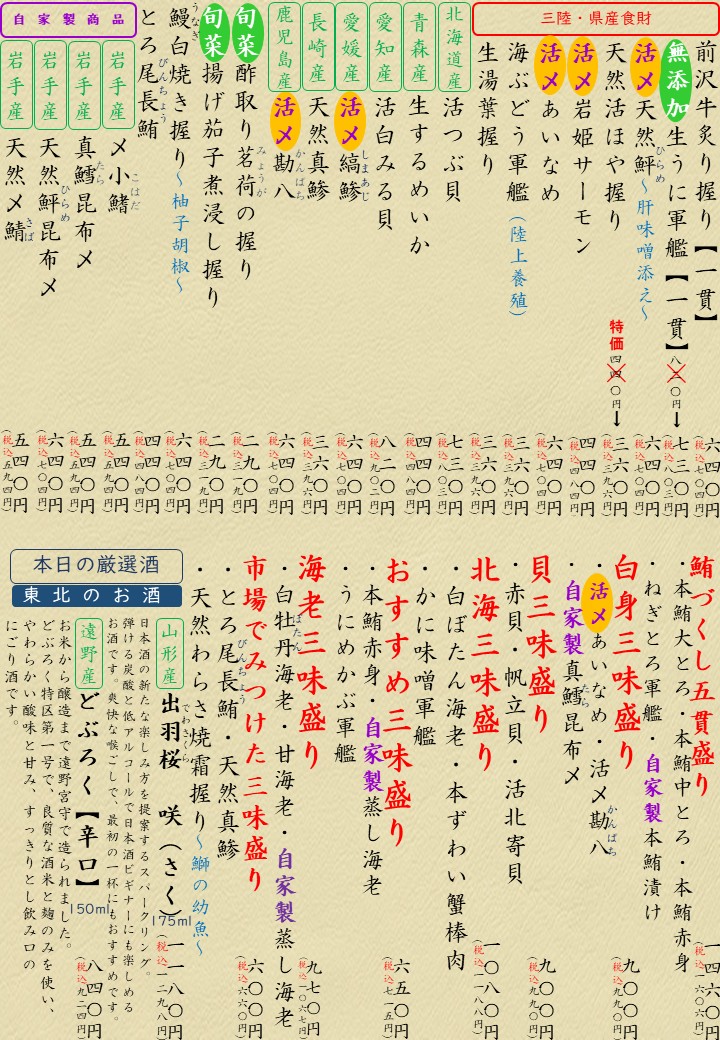 三陸・県産食財
前沢牛炙り握り【一貫】 六四〇円(税込七〇四円)
無添加 生うに軍艦【一貫】 八三〇円→七三〇円(税込八〇三円)
活〆 天然鮃(ひらめ)~肝味噌添え~ 六四〇円(税込七〇四円)
天然活ほや握り 特価 四四〇円→三六〇円(税込三九六円)
活〆 岩姫サーモン 四四〇円(税込四八四円)
活〆 あいなめ 六四〇円(税込七〇四円)
海ぶどう軍艦(陸上養殖) 三六〇円(税込三九六円)
生湯葉握り 三六〇円(税込三九六円)
北海道産 活つぶ貝 七三〇円(税込八〇三円)
青森産 生するめいか 四四〇円(税込四八四円)
愛知産 活白みる貝 八二〇円(税込九〇二円)
愛媛産 活〆 縞鯵(しまあじ) 六四〇円(税込七〇四円)
長崎産 天然真鯵 三六〇円(税込三九六円)
鹿児島産 活〆 勘八(かんぱち) 六四〇円(税込七〇四円)
旬菜 酢取り茗荷(みょうが)の握り 二九〇円(税込三一九円)
旬菜 揚げ茄子煮浸し握り 二九〇円(税込三一九円)
鰻(うなぎ)白焼き握り~柚子胡椒~ 六四〇円(税込七〇四円)
とろ尾長鮪(びんちょう) 四四〇円(税込四八四円)
自家製商品
岩手産 〆小鰭(こはだ) 五四〇円(税込五九四円)
岩手産 真鱈(たら)昆布〆 五四〇円(税込五九四円)
岩手産 天然鮃(ひらめ)昆布〆 六四〇円(税込七〇四円)
岩手産 天然〆鯖(さば) 五四〇円(税込五九四円)
鮪づくし五貫盛り 一四六〇円(税込一六〇六円)
・本鮪大とろ・本鮪中とろ・本鮪赤身
・ねぎとろ軍艦・自家製本鮪漬け
白身三味盛り 九〇〇円(税込九九〇円)
・活〆あいなめ・活〆勘八(かんぱち)
自家製真鱈(たら)昆布〆
貝三味盛り 九〇〇円(税込九九〇円)
・赤貝・帆立貝・活北寄貝
北海三味盛り 一〇八〇円(税込一一八八円)
・白ぼたん海老・本ずわい蟹棒肉
・かに味噌軍艦
おすすめ三味盛り 六五〇円(税込七一五円)
・本鮪赤身・自家製蒸し海老
・うにめかぶ軍艦
海老三味盛り 九七〇円(税込一〇六七円)
・白牡丹(ぼたん)海老・甘海老・自家製蒸し海老
市場でみつけた三味盛り 六〇〇円(税込六六〇円)
・とろ尾長鮪(びんちょう)・天然真鯵
・天然わらさ焼霜握り~鰤の幼魚~
本日の厳選酒
東北のお酒
山形産 出羽桜(でわさくら) 咲(さく) 175ml 一一八〇円(税込一二九八円)
日本酒の新たな楽しみ方を提案するスパークリング。
弾ける炭酸と低アルコールで日本酒ビギナーにも楽しめる
お酒です。爽快な喉ごしで、最初の一杯にもおすすめです。
遠野産 どぶろく【辛口】 150ml 八四〇円(税込九二四円)
お米から醸造まで遠野宮守で造られました。
どぶろく特区第一号で、良質な酒米と麹のみを使い、
やわらかい酸味と甘み、すっきりとし飲み口の
にごり酒です。